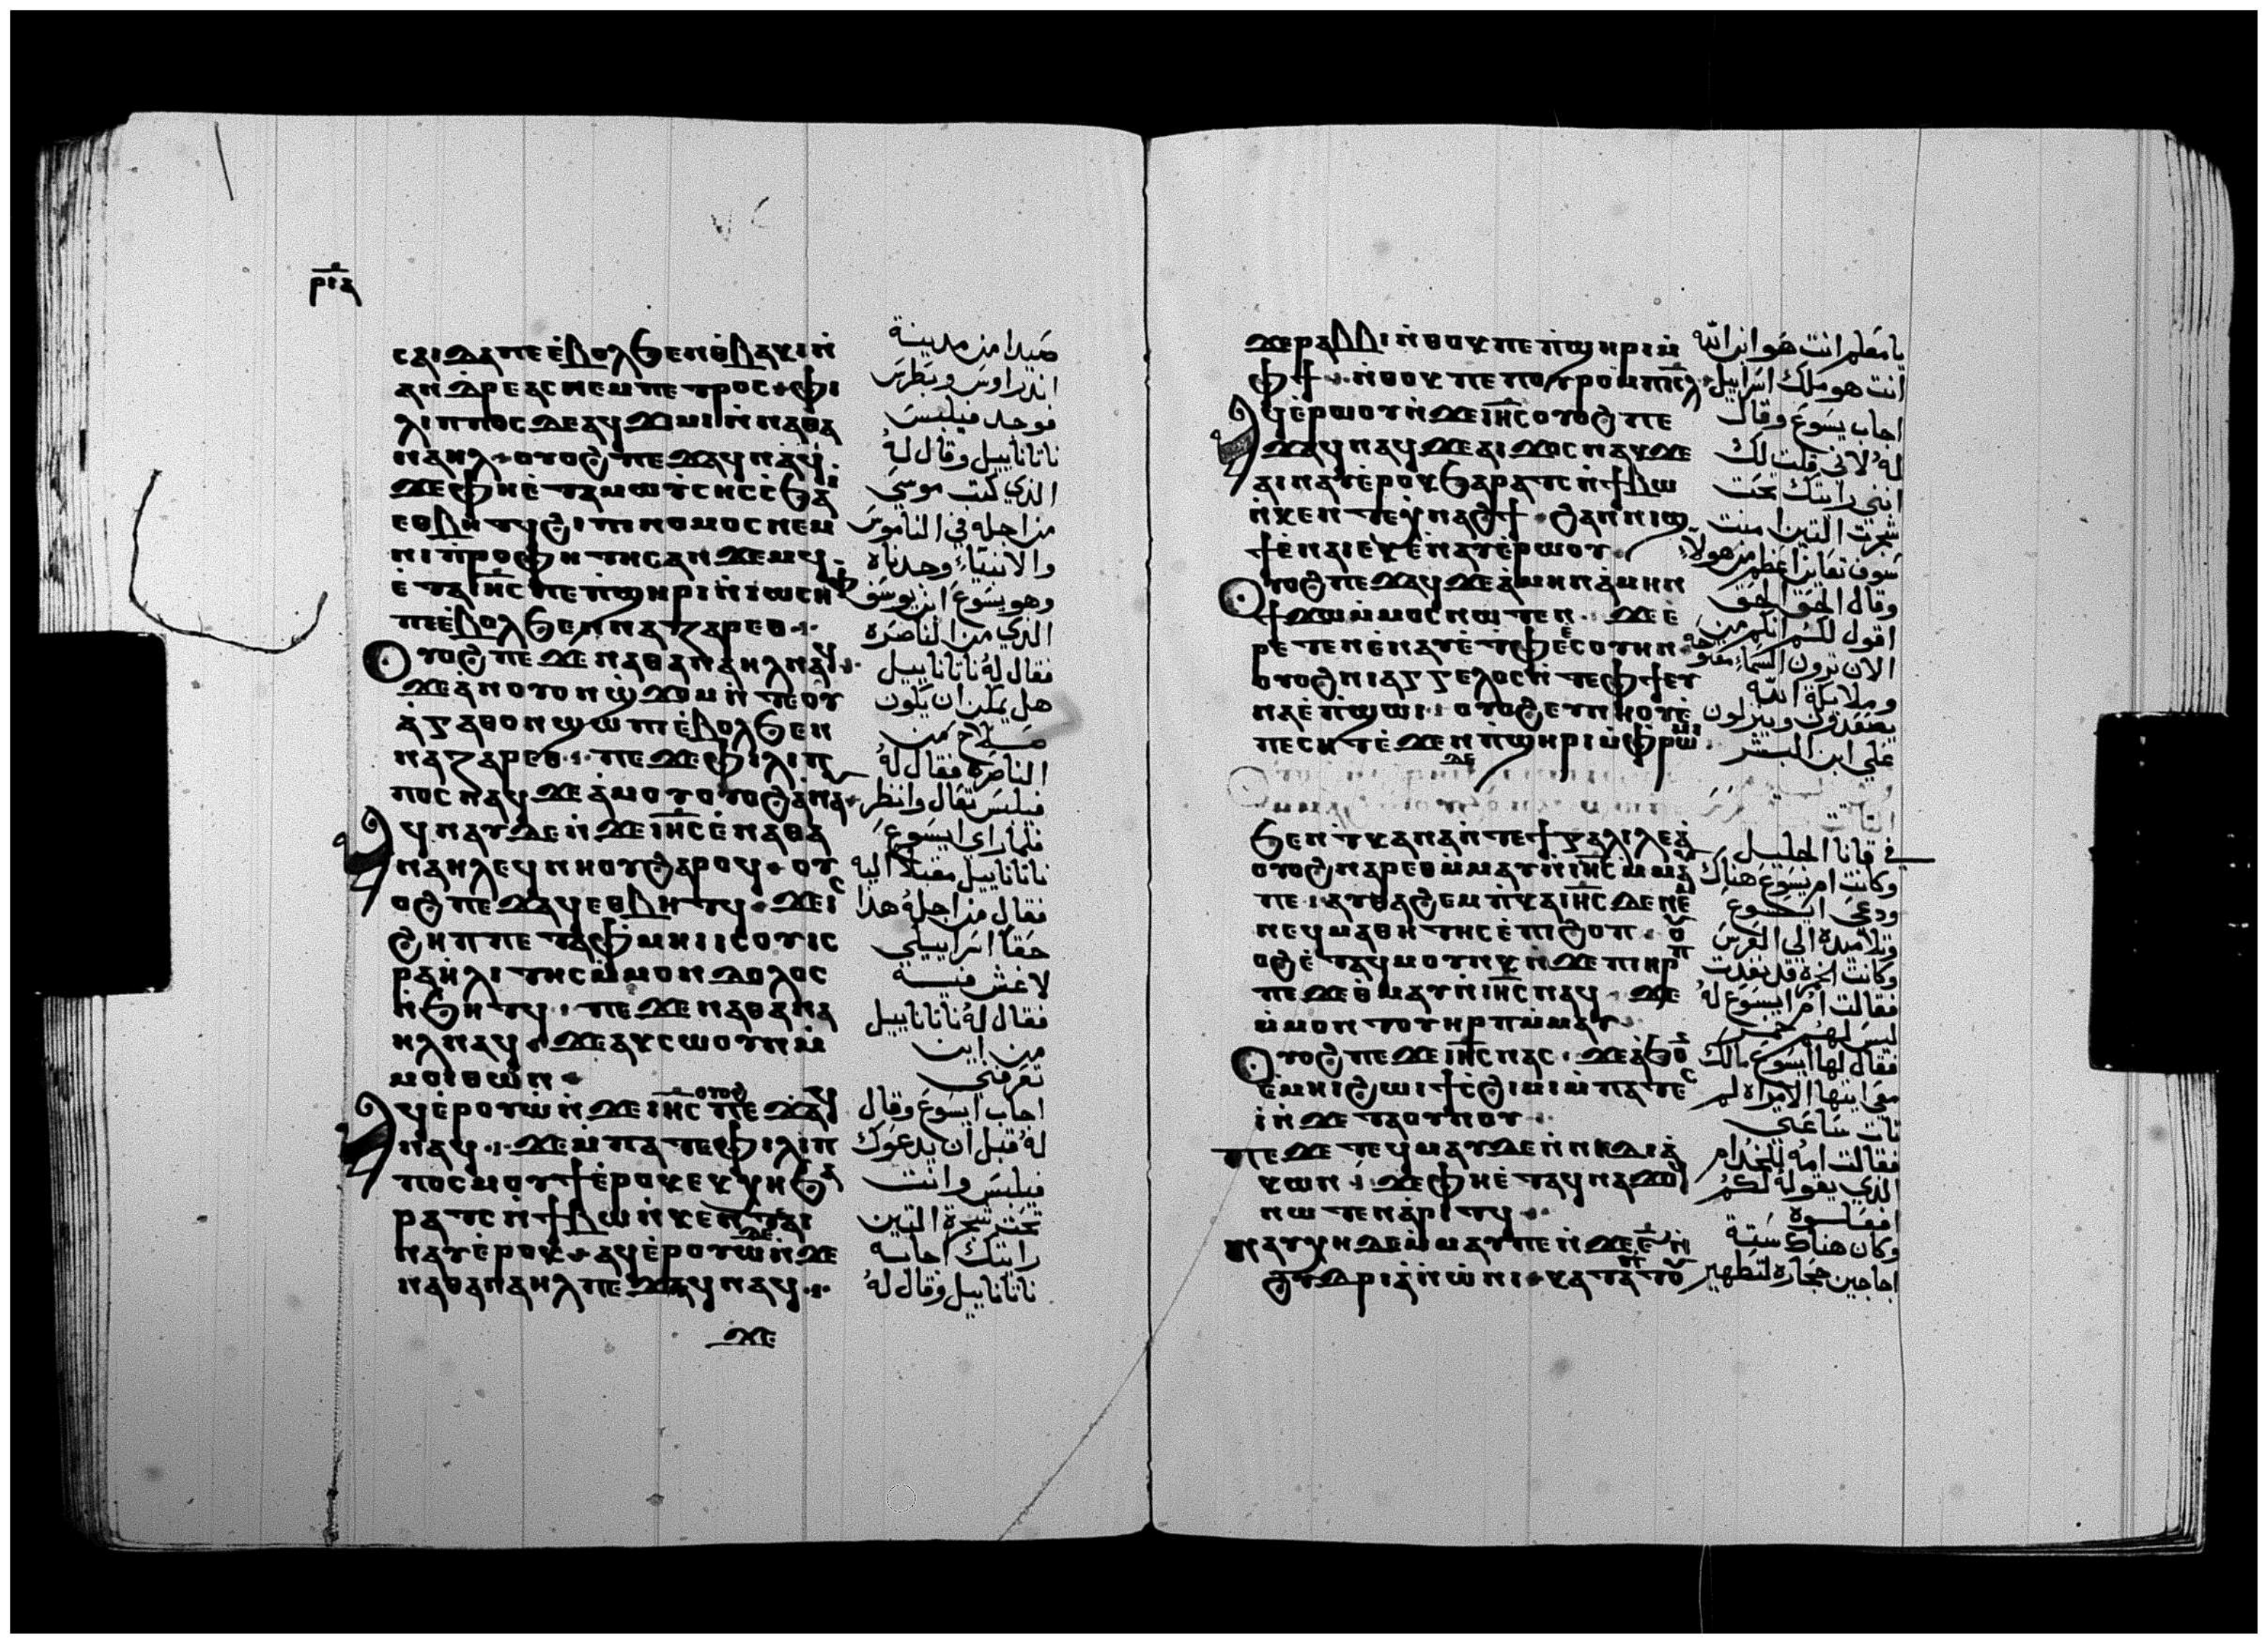 ⲣⲓⲁ
ⲥⲁⲓⲇⲁ ⲡⲉ ⲉ̀ⲃⲟⲗϧⲉⲛ ⲑ̀ⲃⲁⲕⲓ ⲛ̀
ⲁⲛⲇⲣⲉⲁⲥ ⲛⲉⲙ ⲡⲉⲧⲣⲟⲥ ⲫⲓ
ⲗⲓⲡⲡⲟⲥ ⲇⲉ ⲁϥϫⲓⲙⲓ ⲛ̀ⲛⲁⲑⲁ
ⲛⲁⲏⲗ ⲟⲩⲟϩ ⲡⲉϫⲁϥ ⲛⲁϥ
ϫⲉ ⲫⲏ ⲉ̀ⲧⲁ ⲙⲱⲩ̀ⲥⲏⲥ ⲥ̀ϧⲁⲓ
ⲉⲑⲃⲏⲧϥ ϩⲓ ⲡⲓⲛⲟⲙⲟⲥ ⲛⲉⲙ
ⲛⲓⲡ̀ⲣⲟⲫⲏⲧⲏⲥ ⲁⲛϫⲉⲙϥ
ⲉ̀ⲧⲁ ⲓⲏⲥ ⲡⲉ ⲡ̀ϣⲏⲣⲓ ⲛ̀ⲓⲱⲥⲏⲫ
ⲡⲓⲉ̀ⲃⲟⲗϧⲉⲛ ⲛⲁⲍⲁⲣⲉⲑ
ⲟⲩⲟϩ ⲡⲉϫⲉ ⲛⲁⲑⲁⲛⲁⲏⲗ ⲛⲁϥ
ϫⲉ ⲁ̀ⲛ ⲟⲩⲟⲛ ϣ̀ϫⲟⲙ ⲛ̀ⲧⲉ ⲟⲩ
ⲁ̀ⲅⲁⲑⲟⲛ ϣⲱⲡⲓ ⲉ̀ⲃⲟⲗϧⲉⲛ
ⲛⲁⲍⲁⲣⲉⲑ ⲡⲉϫⲉ ⲫⲓⲗⲓⲡ
ⲡⲟⲥ ⲛⲁϥ ϫⲉ ⲁ̀ⲙⲟⲩ ⲟⲩⲟϩ ⲁ̀ⲛⲁⲩ
ⲁϥⲛⲁⲩ ⲇⲉ ⲛ̀ϫⲉ ⲓⲏⲥ ⲉ̀ⲛⲁⲑⲁ
ⲛⲁⲏⲗ ⲉϥⲛⲏⲟⲩ ϩⲁⲣⲟϥ ⲟⲩ
ⲟϩ ⲡⲉϫⲁϥ ⲉⲑⲃⲏⲧϥ ϫⲉ ⲓⲥ
ϩⲏⲡⲡⲉ ⲧⲁⲫⲙⲏⲓ ⲓⲥ ⲟⲩⲓⲥ
ⲣⲁⲏ̀ⲗⲓⲧⲏⲥ ⲙ̀ⲙⲟⲛ ⲇⲟⲗⲟⲥ
ⲛ̀ϧⲏⲧϥ ⲡⲉϫⲉ ⲛⲁⲑⲁⲛⲁ
ⲏⲗ ⲛⲁϥ ϫⲉ ⲁⲕⲥⲱⲟⲩⲛ ⲙ̀
ⲙⲟⲓ ⲑⲱⲛ
ⲁϥⲉ̀ⲣⲟⲩⲱ̀ ⲛ̀ϫⲉ ⲓⲏⲥ ⲟⲩⲟϩ ⲡⲉϫⲁϥ
ⲛⲁϥ ϫⲉ ⲙ̀ⲡⲁⲧⲉ ⲫⲓⲗⲓⲡ
ⲡⲟⲥ ⲙⲟⲩϯ ⲉ̀ⲣⲟⲕ ⲉⲕⲭⲏ ϧⲁ
ⲣⲁⲧⲥ ⲛ̀ϯⲃⲱ ⲛ̀ⲕⲉⲛⲧⲉ ⲁⲓ
ⲛⲁⲩ ⲉ̀ⲣⲟⲕ ⲁϥⲉ̀ⲣⲟⲩⲱ̀ ⲇⲉ ⲛ̀ϫⲉ
ⲛⲁⲑⲁⲛⲁⲏⲗ ⲡⲉϫⲁϥ ⲛⲁϥ
ϫⲉ
صيدا من مدينة
اندراوس وبطرس
فوجد فيلبس
ناتاناييل وقال له
الذي كتب موسي
من اجله في الناموس
والانبياء وجدناه
وهو يسوع ابن يوسف
الذي من الناصره
فقال له ناتاناييل
هل يمكن ان يكون
صلاح من
الناصره فقال له
فيلبس تعال وانظر
فلما راي ايسوع
ناتاناييل مقبلا اليه
فقال من اجله هذا
حقا اسراييلي
لا غش فيه
فقال له ناتاناييل
من اين
تعرفني
اجاب ايسوع وقال
له قبل ان يدعوك
فيلبس وانت
تحت شجرة التين
رايتك اجابه
ناتاناييل وقال له
ϫⲉ ⲣⲁⲃⲃⲓ ⲛ̀ⲑⲟⲕ ⲡⲉ ⲡ̀ϣⲏⲣⲓ ⲙ̀
ⲫϯ ⲛ̀ⲑⲟⲕ ⲡⲉ ⲡⲟⲩⲣⲟ ⲙ̀ⲡⲓⲥⲗ
ⲁϥⲉ̀ⲣⲟⲩⲱ ⲛ̀ϫⲉ ⲓⲏⲥ ⲟⲩⲟϩ ⲡⲉ
ϫⲁϥ ⲛⲁϥ ϫⲉ ⲁⲓϫⲟⲥ ⲛⲁⲕ ϫⲉ
ⲁⲓⲛⲁⲩ ⲉ̀ⲣⲟⲕ ϧⲁⲣⲁⲧⲥ ⲛ̀ϯⲃⲱ
ⲛ̀ⲕⲉⲛⲧⲉ ⲭ̀ⲛⲁϩϯ ϩⲁⲛⲛⲓϣ
ϯ ⲉ̀ⲛⲁⲓ ⲉⲕⲉ̀ⲛⲁⲩ ⲉ̀ⲣⲱⲟⲩ
ⲟⲩⲟϩ ⲡⲉϫⲁϥ ϫⲉ ⲁ̀ⲙⲏⲛ ⲁ̀ⲙⲏⲛ
ϯϫⲱ ⲙ̀ⲙⲟⲥ ⲛⲱⲧⲉⲛ ϫⲉ ⲉ̀
ⲣⲉⲧⲉⲛⲉ̀ⲛⲁⲩ ⲉ̀ⲧ̀ⲫⲉ ⲉ̀ⲥⲟⲩⲏⲛ
ⲟⲩⲟϩ ⲛⲓⲁⲅⲅⲉⲗⲟⲥ ⲛ̀ⲧⲉ ⲫϯ ⲉⲩ
ⲛⲁ ⲉ̀ⲡ̀ϣⲱⲓ ⲟⲩⲟϩ ⲉⲩⲛⲏⲟⲩ ⲉ̀
ⲡⲉⲥⲏⲧ ⲉ̀ϫⲉⲛ ⲡ̀ϣⲏⲣⲓ ⲙ̀ⲫⲣⲱⲙⲓ
ϧⲉⲛ ⲧ̀ⲕⲁⲛⲁ ⲛ̀ⲧⲉ ϯⲅⲁⲗⲓⲗⲉⲁ̀
ⲟⲩⲟϩ ⲛⲁⲣⲉ ⲑ̀ⲙⲁⲩ ⲛ̀ⲓⲏⲥ ⲙ̀ⲙⲁⲩ
ⲡⲉ ⲁⲩⲑⲁϩⲉⲙ ⲡ̀ⲕⲁⲓⲏⲥ ⲇⲉ ⲛⲉⲙ
ⲛⲉϥⲙⲁⲑⲏⲧⲏⲥ ⲉ̀ⲡⲓϩⲟⲡ ⲟⲩ
ⲟϩ ⲉ̀ⲧⲁϥⲙⲟⲩⲛⲕ ⲛ̀ϫⲉ ⲡⲓⲏⲣⲡ
ⲡⲉϫⲉ ⲑ̀ⲙⲁⲩ ⲛ̀ⲓⲏⲥ ⲛⲁϥ ϫⲉ
ⲙ̀ⲙⲟⲛ ⲧⲟⲩ ⲏⲣⲡ ⲙ̀ⲙⲁⲩ
ⲟⲩⲟϩ ⲡⲉϫⲉ ⲓⲏⲥ ⲛⲁⲥ ϫⲉ ⲁ̀ϧⲟ
ⲉ̀ⲙⲏⲓ ϩⲱⲓ ϯⲥ̀ϩⲓⲙⲓ ⲙ̀ⲡⲁⲧⲉⲥ
ⲓ̀ ⲛ̀ϫⲉ ⲧⲁⲟⲩⲛⲟⲩ
ⲡⲉϫⲉ ⲧⲉϥⲙⲁⲩ ϫⲉⲛ̀ ⲛⲓⲇⲓⲁ̀
ⲕⲱⲛ ϫⲉ ⲫⲏ ⲉ̀ⲧⲁϥⲛⲁϫⲟϥ
ⲛⲱⲧⲉⲛ ⲁ̀ⲣⲓⲧϥ
ⲛⲁⲩⲭⲏ ⲇⲉ ⲙ̀ⲙⲁⲩ ⲡⲉ ⲛ̀ϫⲉ ⲋ̅ ⲛ̀
ϩⲩⲇⲣⲓⲁ̀ ⲛ̀ⲱ̀ⲛⲓ ⲕⲁⲧⲁ ⲡⲧⲟⲩ
يا معلم انت هو ابن الله
انت هو ملك اسراييل
اجاب يسوع وقال
له لاني قلت لك
انني رايتك تحت
شجرت التين امنت
سوف تعاين اعظم من هولاء
وقال الحق الحق
اقول لكم انكم من
الان ترون السماء مفتوحه
وملايكة الله
يصعدون وينزلون
علي ابن البشر
في قانا الجليل
وكانت ام يسوع هناك
ودعي ايسوع
وتلاميده الي العرس
وكانت الخمره قد نفدت
فقالت ام ايسوع له
ليس لهم خمر
فقال لها ايسوع مالك
معي ايتها الامراه لم
تات ساعتي
فقالت امه للخدام
الذي يقوله لكم
افعلوه
وكان هناك ستة
اجاجين حجاره لتطهير